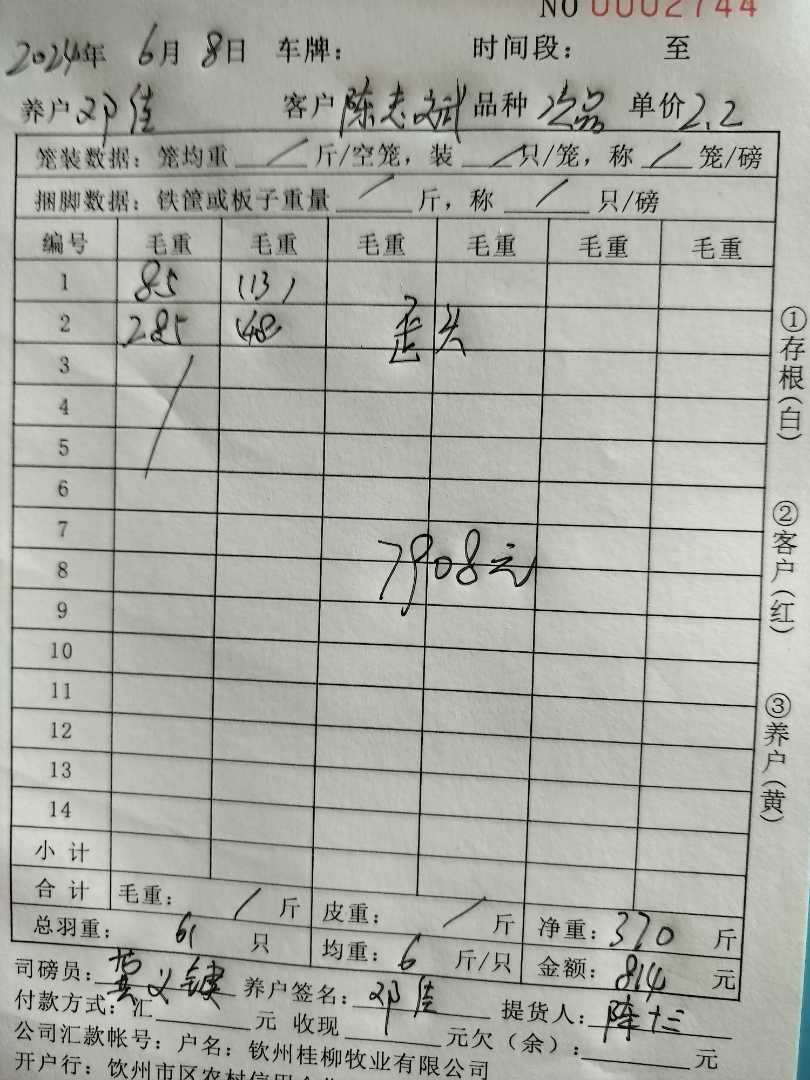 NO 0002744
2024年 6月 8日 车牌: 时间段: 至
养户 邓佳 客户 陈志斌 品种 次品 单价 2.2
笼装数据: 笼均重 / 斤/空笼, 装 / 只/笼, 称 / 笼/磅
捆脚数据: 铁筐或板子重量 / 斤, 称 / 只/磅
编号 毛重 毛重 毛重 毛重 毛重 毛重
1 85 (13)
2 285 48 歪头
3
4
5
6
7
8 7908元
9
10
11
12
13
14
小计
合计 毛重: / 斤 皮重: / 斤 净重: 370 斤
总羽重: 61 只 均重: 6 斤/只 金额: 814 元
司磅员: 黄义键 养户签名: 邓佳 提货人: 陈十三
付款方式: 汇 元 收现 元欠(余): 元
公司汇款帐号: 户名: 钦州桂柳牧业有限公司
开户行: 钦州市区农村信用合
①存根(白)
②客户(红)
③养户(黄)